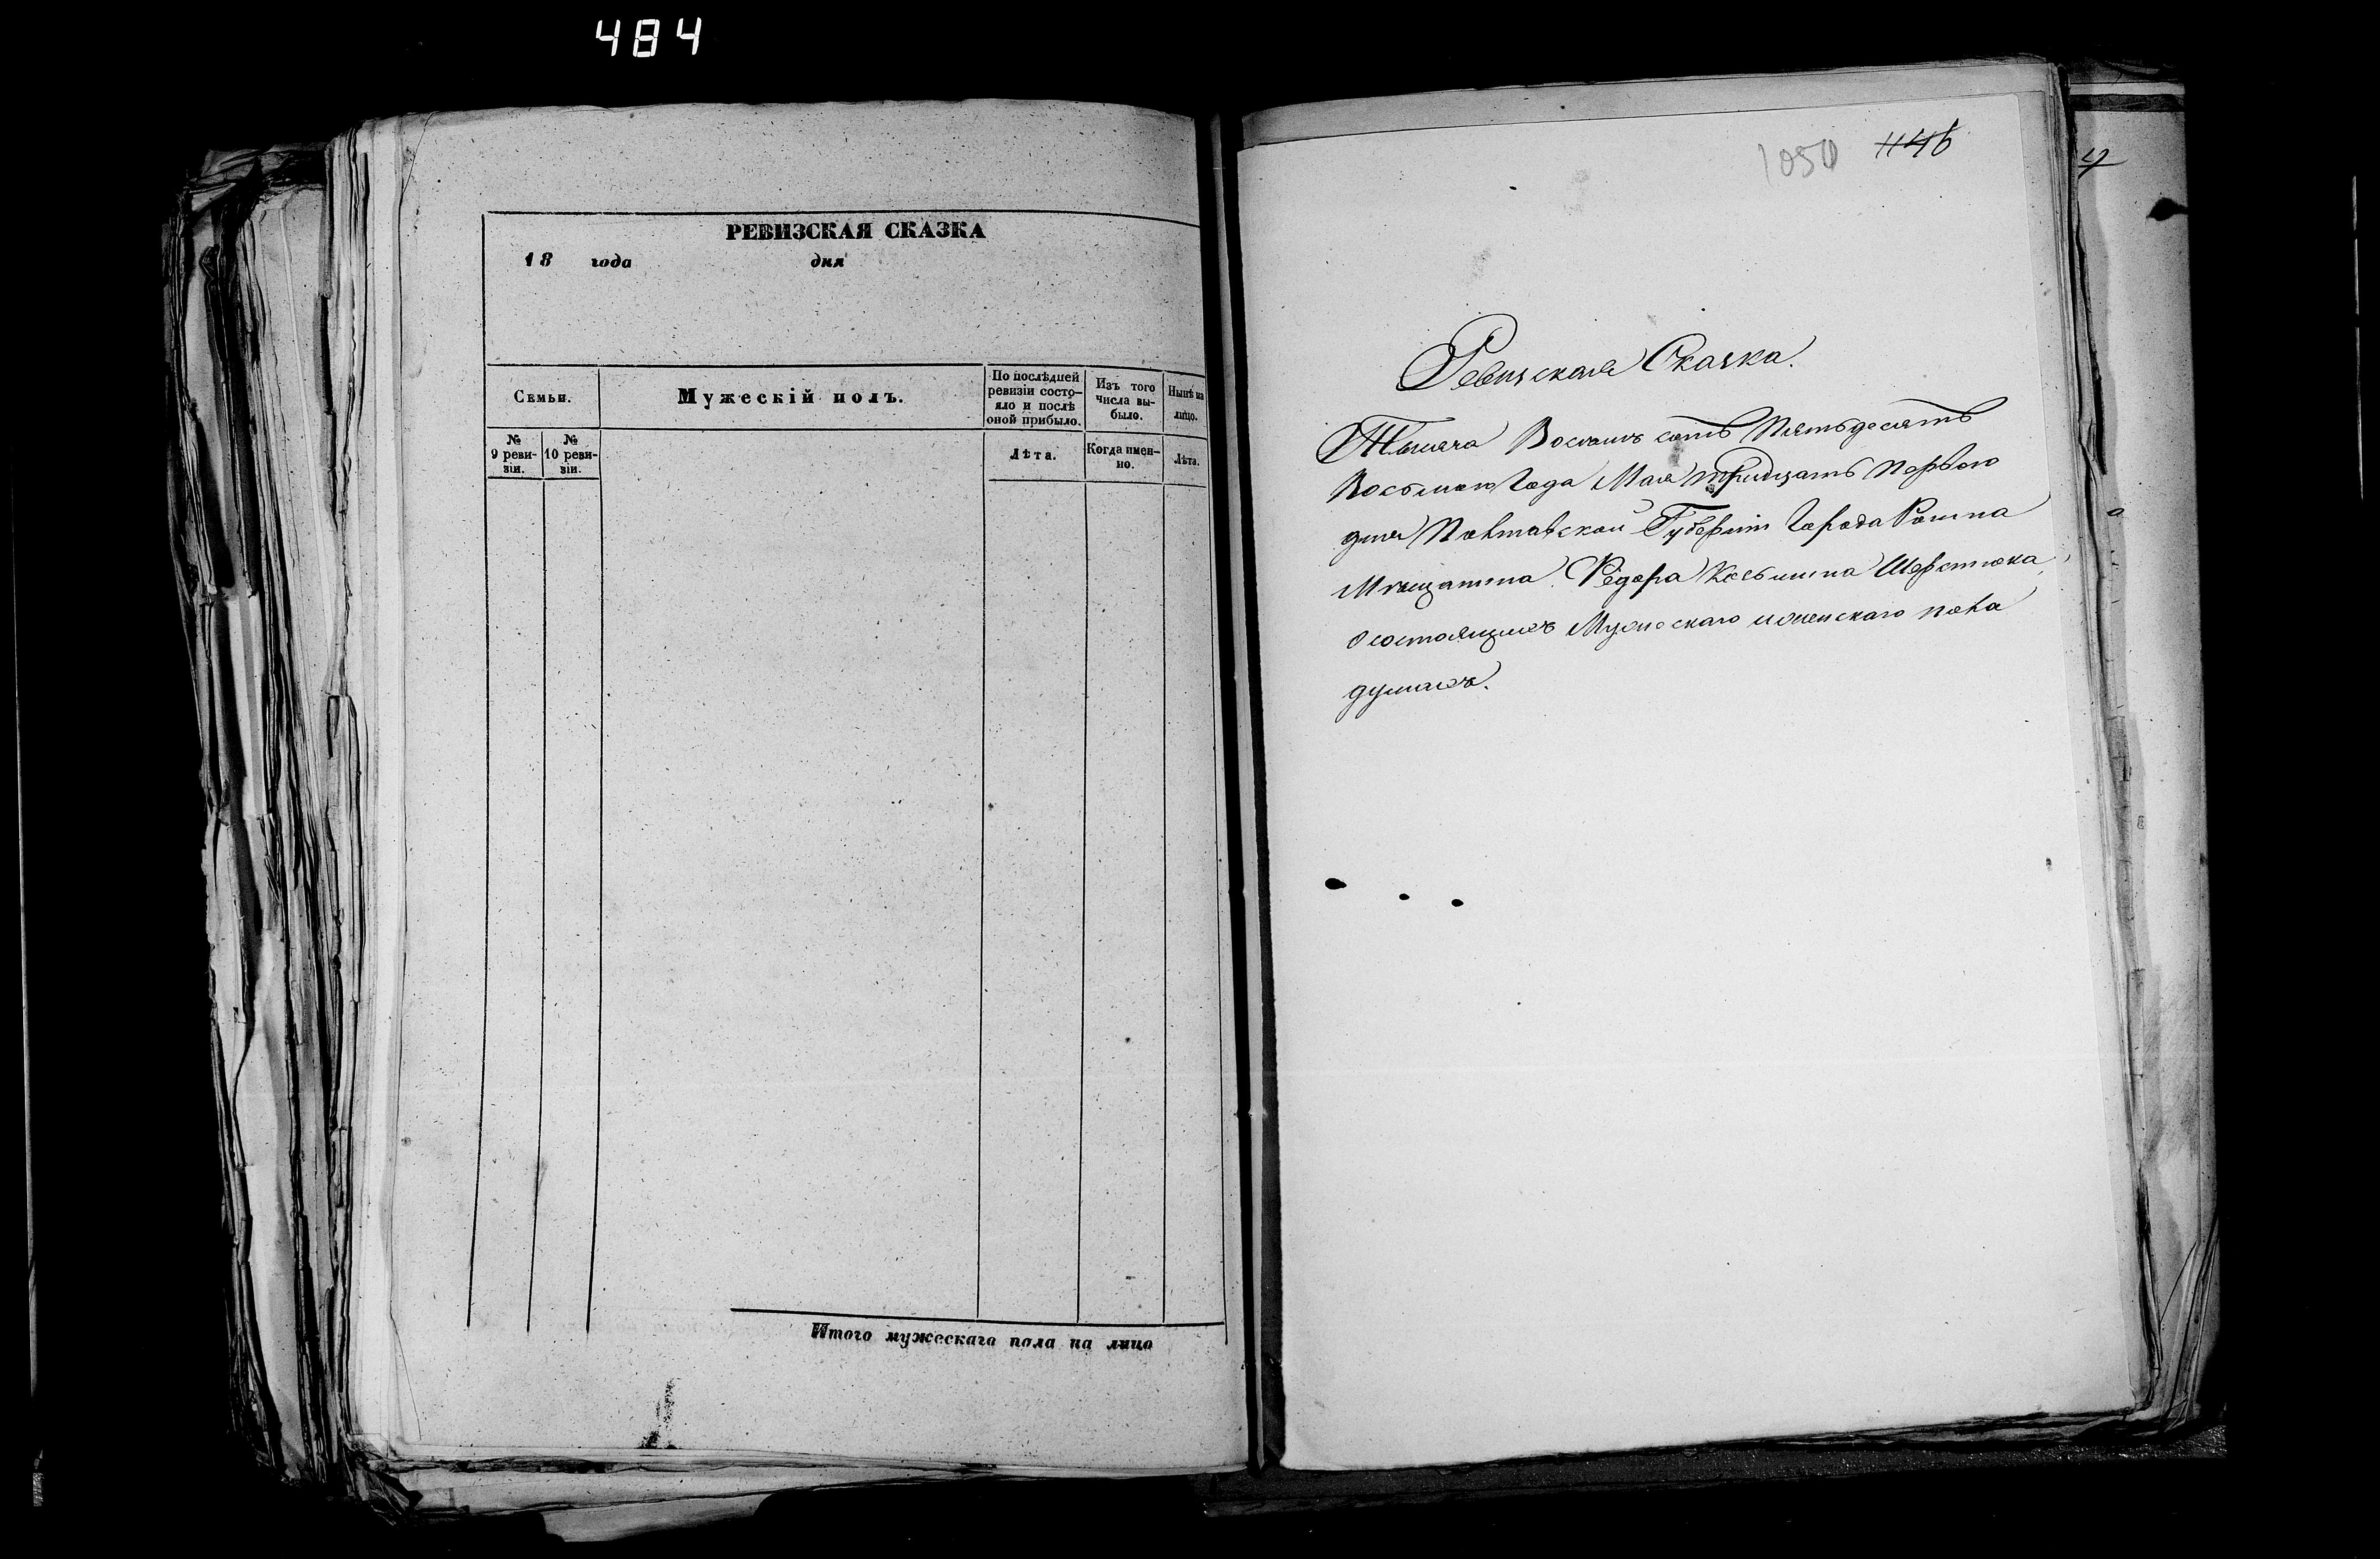 484
РЕВИЗСКАЯ СКАЗКА
18 года дня
Семьи.
№ 9 реви-
зіи.
№ 10 реви-
зіи.
Мужескій полъ.
По послѣдней
ревизіи состо-
яло и послѣ
оной прибыло.
Лѣта.
Изъ того
числа вы-
было.
Когда имен-
но.
Нынѣ на
лицо.
Лѣта.
Итого мужескаго пола на лицо
1050 1146
Ревизская Сказка.
Тысяча Восемь сотъ Пятьдесятъ
Восьмого Года Мая тридцать Первого
дня Полтавской Губерніи Города Ромна
Мѣщанина Федора Косьмина Шерстюка,
О состоящихъ Мужескаго и женскаго пола
душахъ.